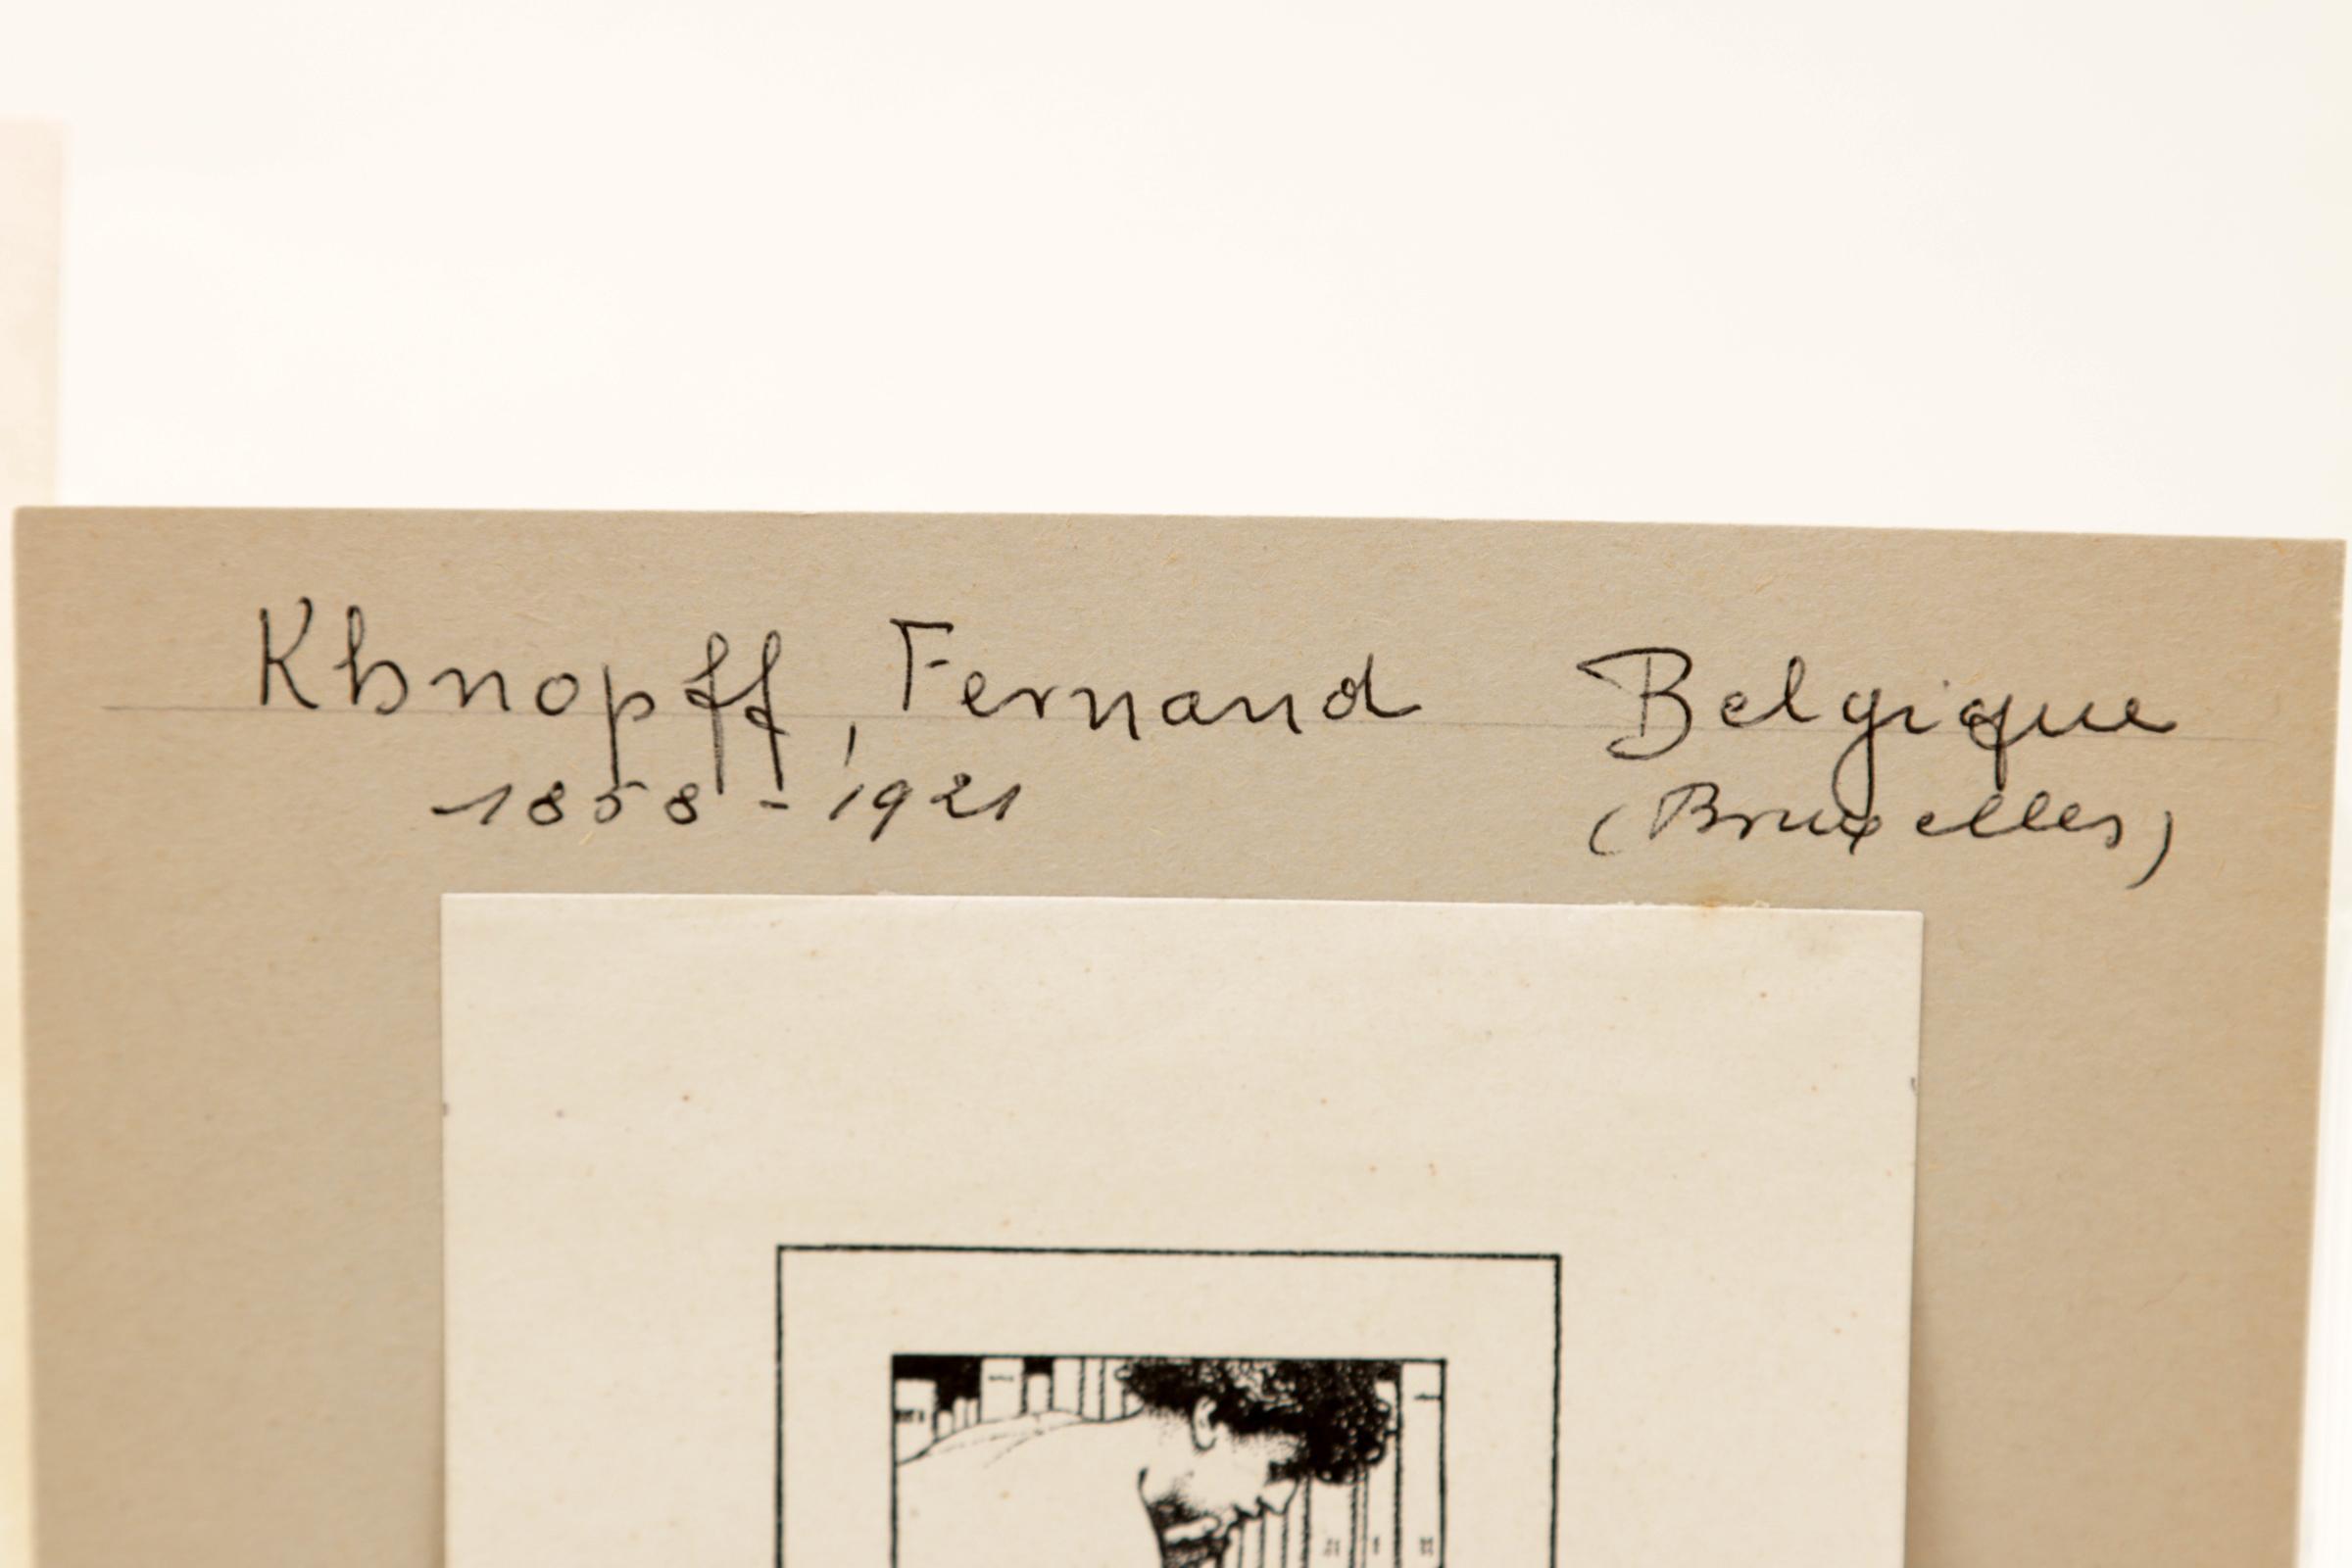 Khnopff, Fernand Belgique
1858 - 1921 (Bruxelles)